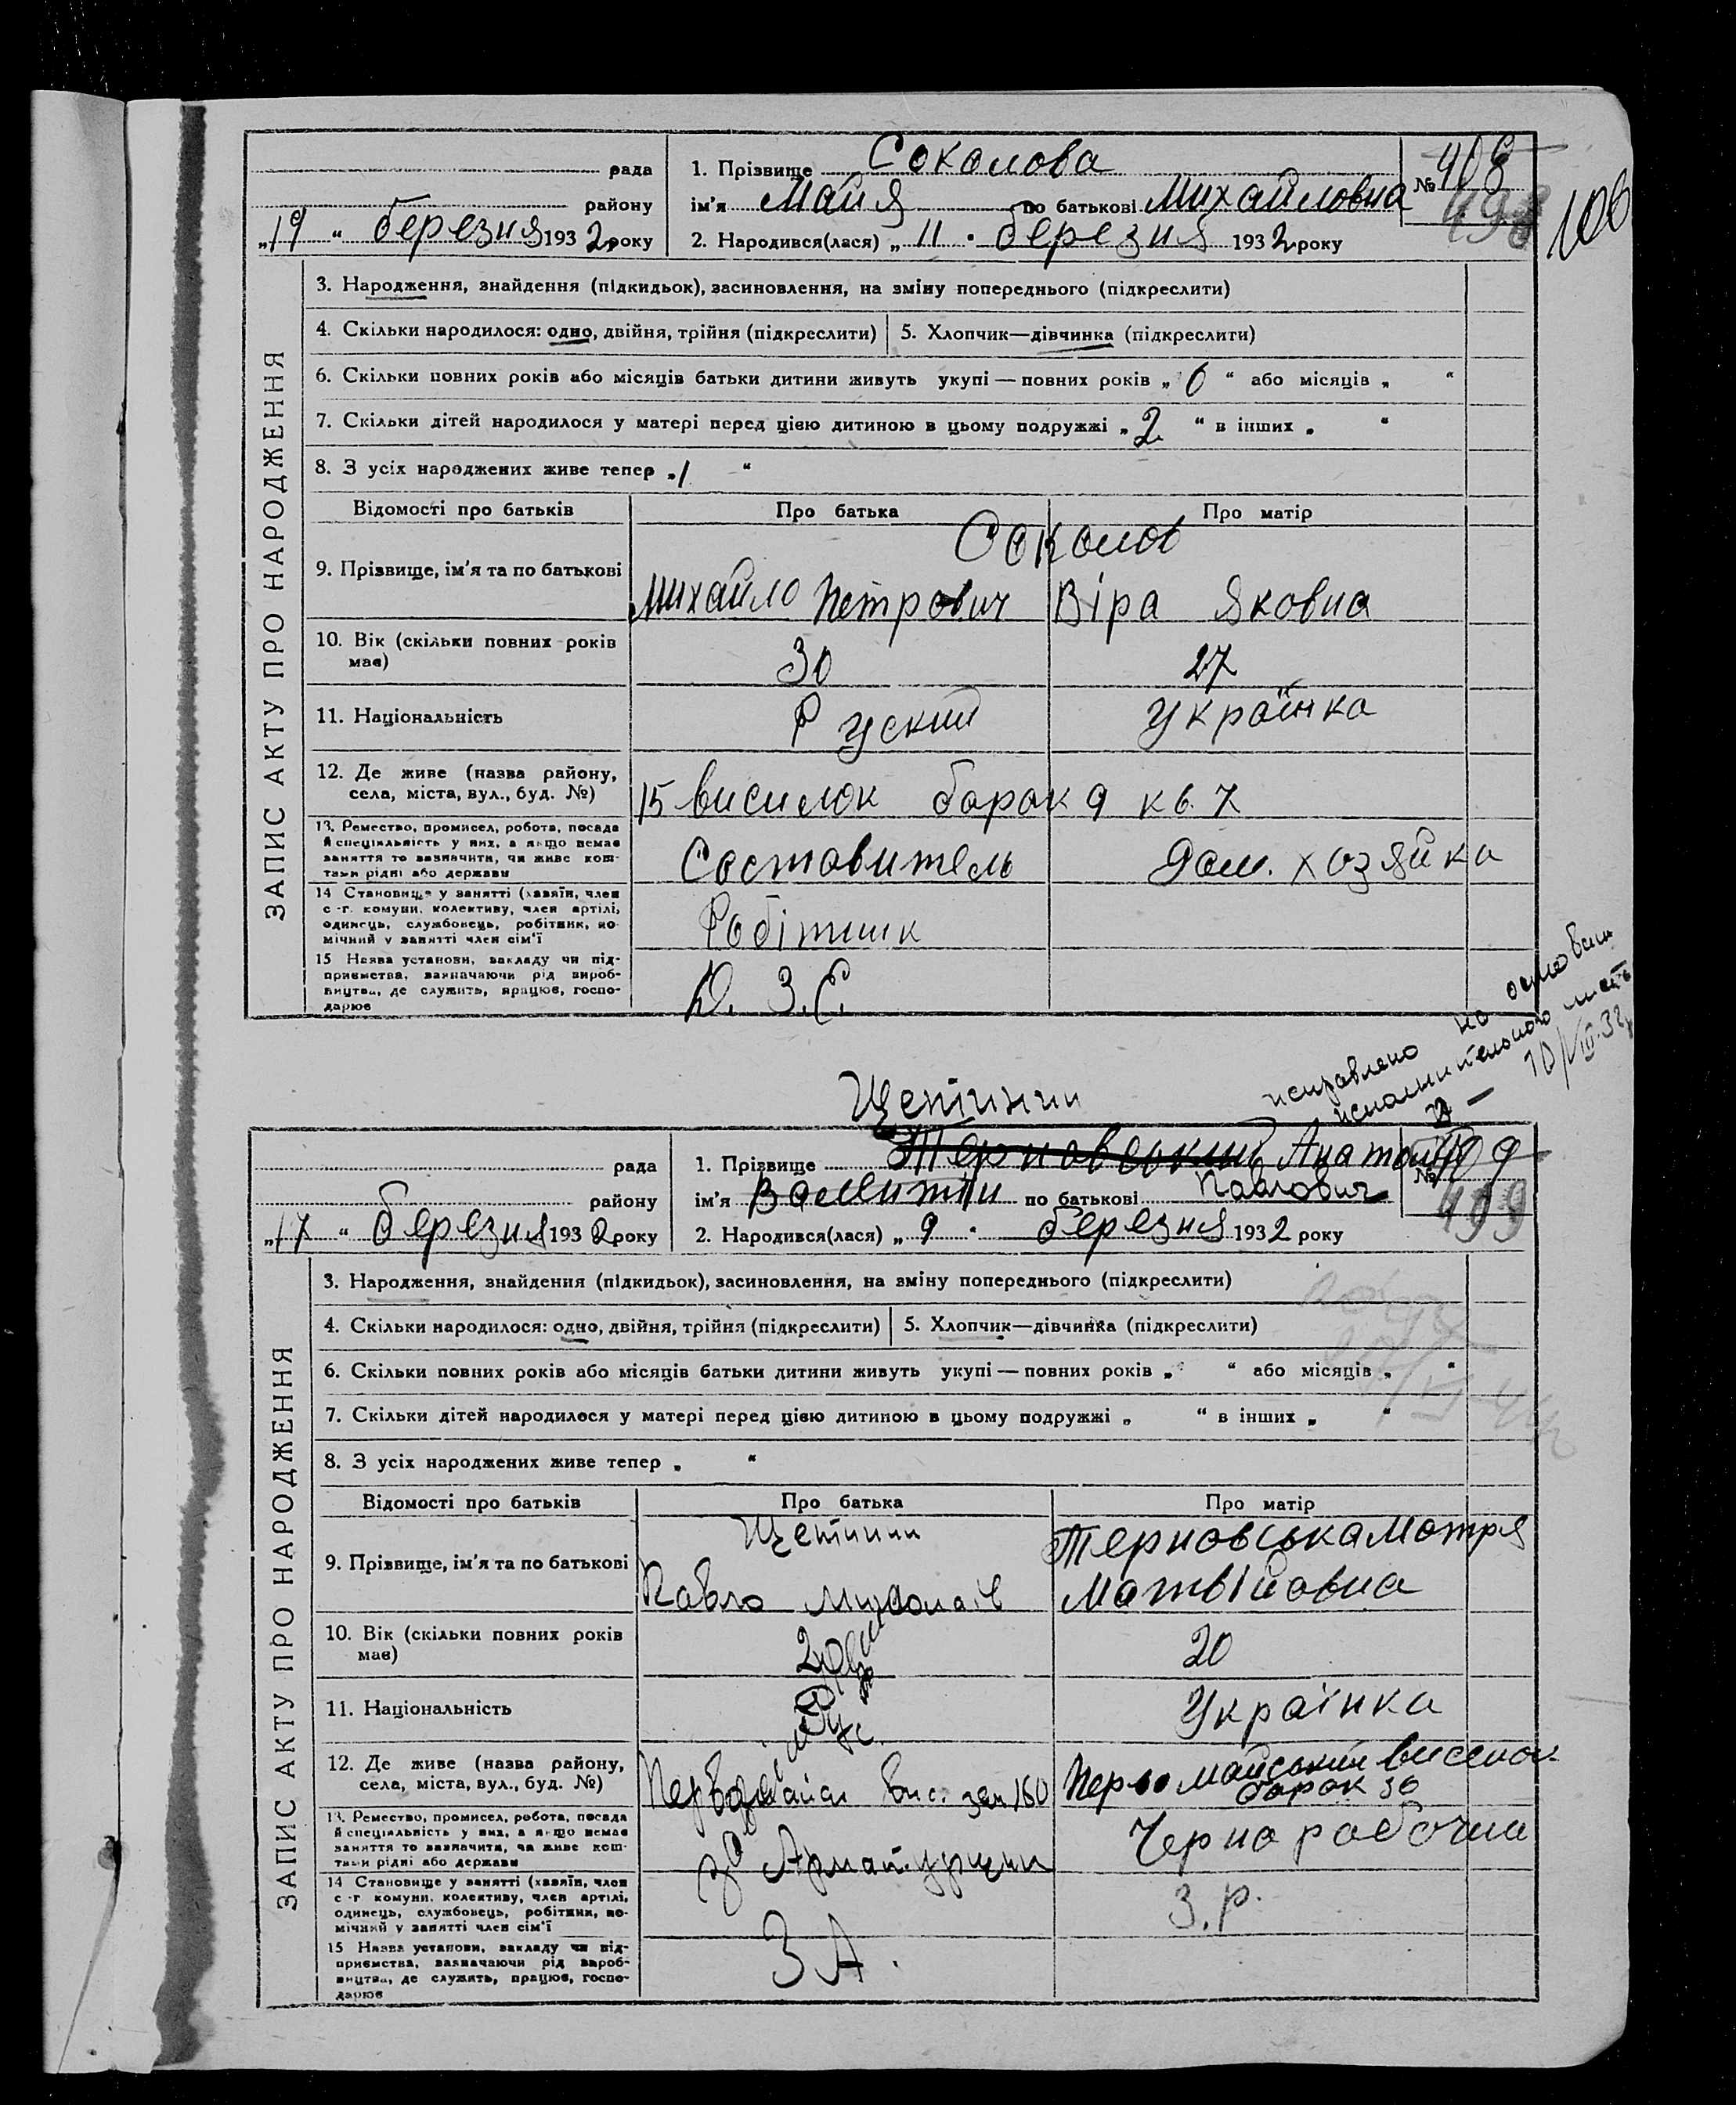 рада
района
„19 “ березня 1932 року
1. Прізвище Соколова
ім'я Майя по батькові Михайловна
2. Народився(лася) „ 11 “ березня 1932 року
№ 408
498
106
ЗАПИС АКТУ ПРО НАРОДЖЕННЯ
3. Народження, знайдення (підкидьок), засиновлення, на зміну попереднього (підкреслити)
4. Скільки народилося: одно, двійня, трійня (підкреслити) 5. Хлопчик—дівчинка (підкреслити)
6. Скільки повних років або місяців батьки дитини живуть укупі — повних років „ 6 “ або місяців „ “
7. Скільки дітей народилося у матері перед цією дитиною в цьому подружжі „ 2 “ в інших „ “
8. З усіх народжених живе тепер „ 1 “
Відомості про батьків Про батька Про матір
Соколов
9. Прізвище, ім'я та по батькові Михайло Петрович Віра Яковна
10. Вік (скільки повних років має) 30 27
11. Національність Руский Українка
12. Де живе (назва району, села, міста, вул., буд. №) 15 висилок барак 9 кв. 7
13. Ремество, промисел, робота, посада й спеціяльність у них, а якщо немає заняття то зазначити, чи живе коштами рідні або держави Составитель Дом. хозяйка
14 Становище у занятті (хазяїн, член с.-г. комуни, колективу, член артілі, одинець, службовець, робітник, помічний у занятті член сім'ї Робітник
15 Назва установи, закладу чи підприємства, зазначаючи рід виробництва, де служить, працює, господарює Д. З. С.
исправлено на основании
исполнительного листа
10/VIII-32
Щетінин
рада
району
„17 “ березня 1932 року
1. Прізвище Терновський Анатолій
ім'я Валинтін по батькові Павлович
2. Народився(лася) „ 9 “ березня 1932 року
№ 409
499
ЗАПИС АКТУ ПРО НАРОДЖЕННЯ
3. Народження, знайдення (підкидьок), засиновлення, на зміну попереднього (підкреслити)
4. Скільки народилося: одно, двійня, трійня (підкреслити) 5. Хлопчик—дівчинка (підкреслити)
6. Скільки повних років або місяців батьки дитини живуть укупі — повних років „ “ або місяців „ “
7. Скільки дітей народилося у матері перед цією дитиною в цьому подружжі „ “ в інших „ “
8. З усіх народжених живе тепер „ “
Відомості про батьків Про батька Про матір
Щетинин Терновська Мотря
9. Прізвище, ім'я та по батькові Павло Матвійовна
10. Вік (скільки повних років має) 20 20
11. Національність Рус. Українка
12. Де живе (назва району, села, міста, вул., буд. №) вис. зем 150 Перво майський виселок
барак 36
13. Ремество, промисел, робота, посада й спеціяльність у них, а якщо немає заняття то зазначити, чи живе коштами рідні або держави Арматурщик Черно рабочая
14 Становище у занятті (хазяїн, член с.-г. комуни, колективу, член артілі, одинець, службовець, робітник, помічний у занятті член сім'ї З. р.
15 Назва установи, закладу чи підприємства, зазначаючи рід виробництва, де служить, працює, господарює З А.